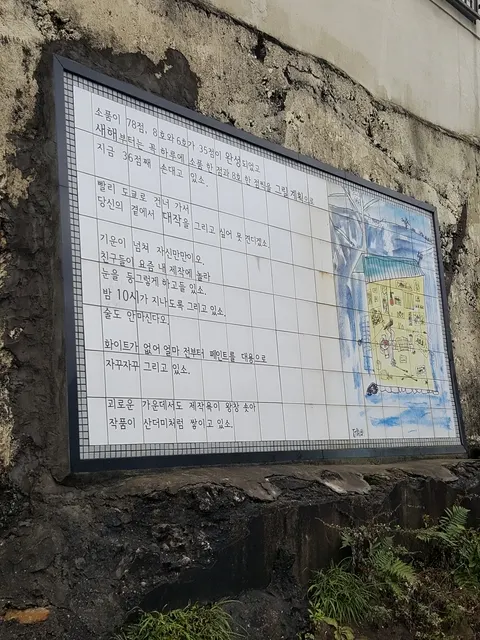 소품이 78점, 8호와 6호가 35점이 완성되었고
새해부터는 꼭 하루에 소품 한 점과 8호 한 점씩을 그릴 계획으로
지금 36점째 손대고 있소.
빨리 도쿄로 건너 가서
당신의 곁에서 대작을 그리고 싶어 못 견디겠소.
기운이 넘쳐 자신만만이오.
친구들이 요즘 내 제작에 놀라
눈을 둥그렇게 하고들 있소.
밤 10시가 지나도록 그리고 있소.
술도 안마신다오.
화이트가 없어 얼마 전부터 페인트를 대용으로
자꾸자꾸 그리고 있소.
괴로운 가운데서도 제작욕이 왕창 솟아
작품이 산더미처럼 쌓이고 있소.